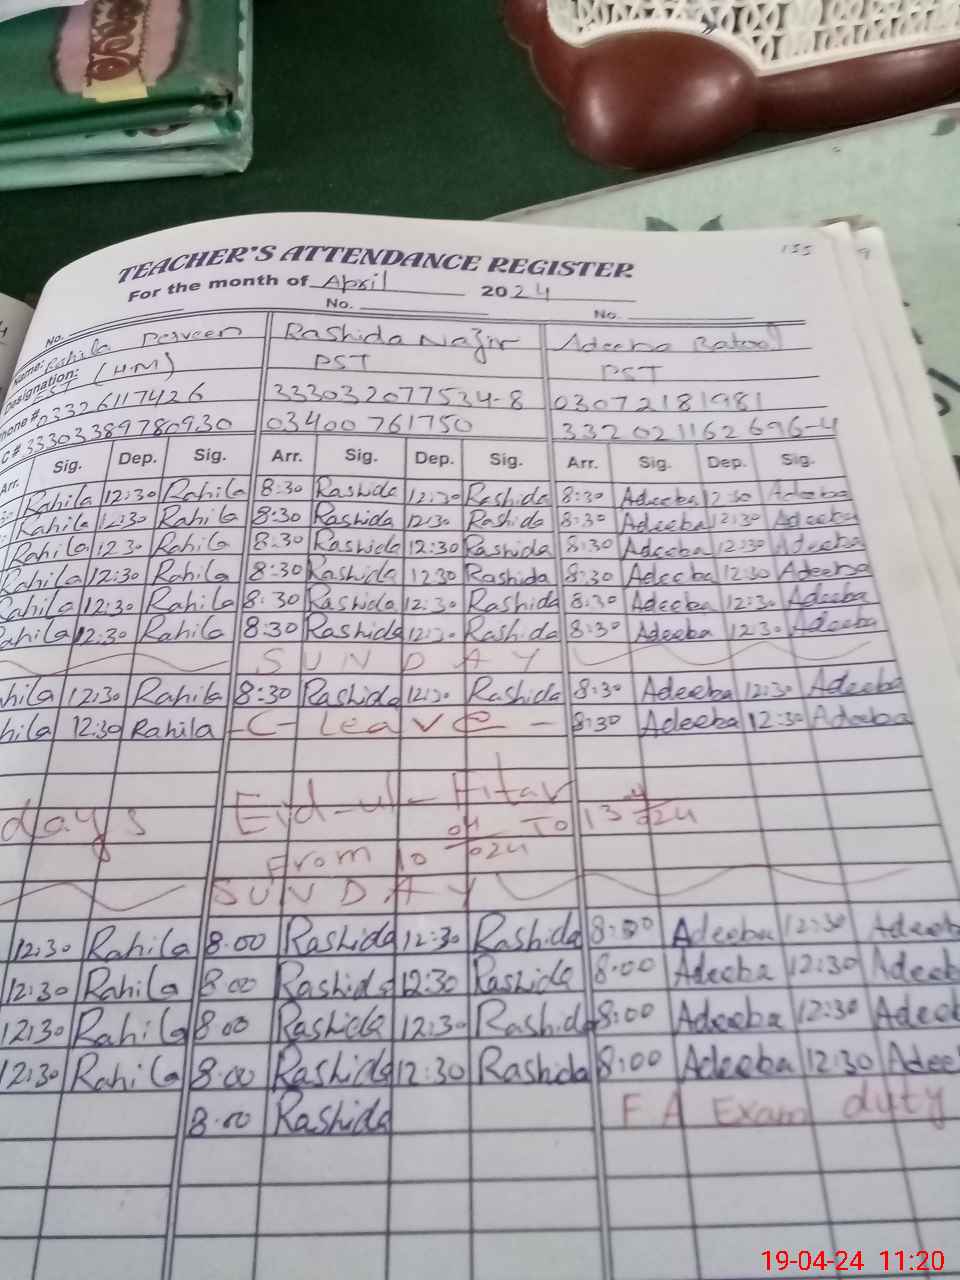 155
TEACHER'S ATTENDANCE REGISTER
For the month of April 2024
No. No. No.
Name: Rahila Perveen Rashida Nazir Adeeba Batool
Designation: PST (HM) PST PST
03326117426 333032077534-8 03072181981
333033897809.30 03400761750 332021162696-4
Arr. Sig. Dep. Sig. Arr. Sig. Dep. Sig. Arr. Sig. Dep. Sig.
Rahila 12:30 Rahila 8:30 Rashida 12:30 Rashida 8:30 Adeeba 12:30 Adeeba
Rahila 12:30 Rahila 8:30 Rashida 12:30 Rashida 8:30 Adeeba 12:30 Adeeba
Rahila 12 30 Rahila 8:30 Rashida 12:30 Rashida 8:30 Adeeba 12:30 Adeeba
Rahila 12:30 Rahila 8:30 Rashida 1230 Rashida 8:30 Adeeba 12:30 Adeeba
Rahila 12:30 Rahila 8:30 Rashida 12:30 Rashida 8:30 Adeeba 12:30 Adeeba
Rahila 12:30 Rahila 8:30 Rashida 12:30 Rashida 8:30 Adeeba 12:30 Adeeba
SUNDAY
hila 12:30 Rahila 8:30 Rashida 12:30 Rashida 8:30 Adeeba 12:30 Adeeba
hila 12:30 Rahila - C - leave - 8:30 Adeeba 12:30 Adeeba
days Eid-ul-Fitar
From 10 04/024 To 13 4/024
SUNDAY
12:30 Rahila 8.00 Rashida 12:30 Rashida 8:00 Adeeba 12:30 Adeeb
12:30 Rahila 8.00 Rashida 12:30 Rashida 8:00 Adeeba 12:30 Adeeb
12:30 Rahila 8.00 Rashida 12:30 Rashida 8:00 Adeeba 12:30 Adeeb
12:30 Rahila 8.00 Rashida 12:30 Rashida 8:00 Adeeba 12:30 Adee
8.00 Rashida FA Exam duty
19-04-24 11:20